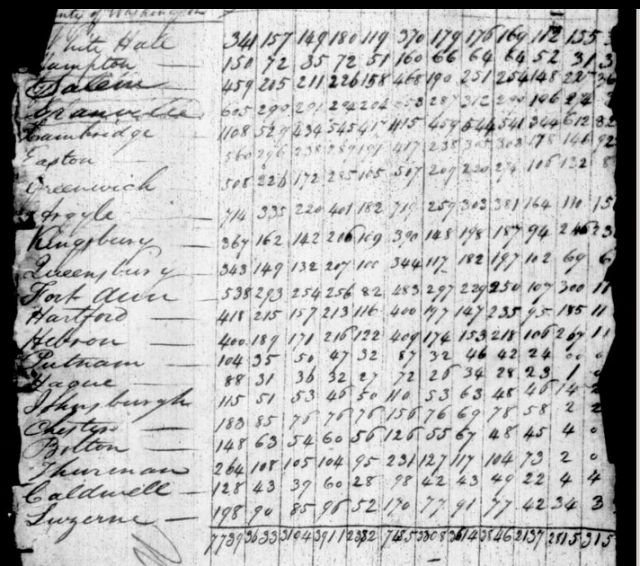 County of Washington
White Hall 341 157 149 180 119 370 179 176 169 112 155
Hampton 150 72 85 72 51 160 66 64 64 52 31 3
Salem 459 205 211 226 158 468 190 251 254 148 227
Granville 605 290 291 204 287 312 290 196
Cambridge 1108 529 434 545 417 1115 459 544 541 344 612 32
Easton 560 296 238 417 238 305 178 92
Greenwich 508 226 172 285 165 507 209 220 274 106 132 8
Argyle 714 335 220 401 182 259 302 381 164 110 15
Kingsbury 367 162 142 216 109 390 148 198 187 94 246 23
Queensbury 343 149 132 207 100 344 117 182 197 102 69 6
Fort Ann 538 293 254 256 82 483 297 229 250 107 300 11
Hartford 418 215 157 213 116 400 197 147 235 95 185 11
Hebron 400 189 171 216 122 409 174 153 218 106 267 11
Putnam 104 35 50 47 32 87 32 46 42 24 00 0
Hague 88 31 36 32 27 72 26 34 28 23 1 0
Johnsburgh 115 51 53 46 50 110 53 63 48 46 14 2
Chester 183 85 76 76 76 156 76 69 78 58 2 2
Bolton 148 63 54 60 56 126 55 67 48 45 4 0
Thurman 264 108 105 104 95 231 127 117 104 73 2 0
Caldwell 128 43 39 60 28 98 42 43 49 22 4 4
Luzerne 198 90 85 96 52 170 77 91 77 42 34 3
7739 3633 3104 3911 2382 2137 2815 315